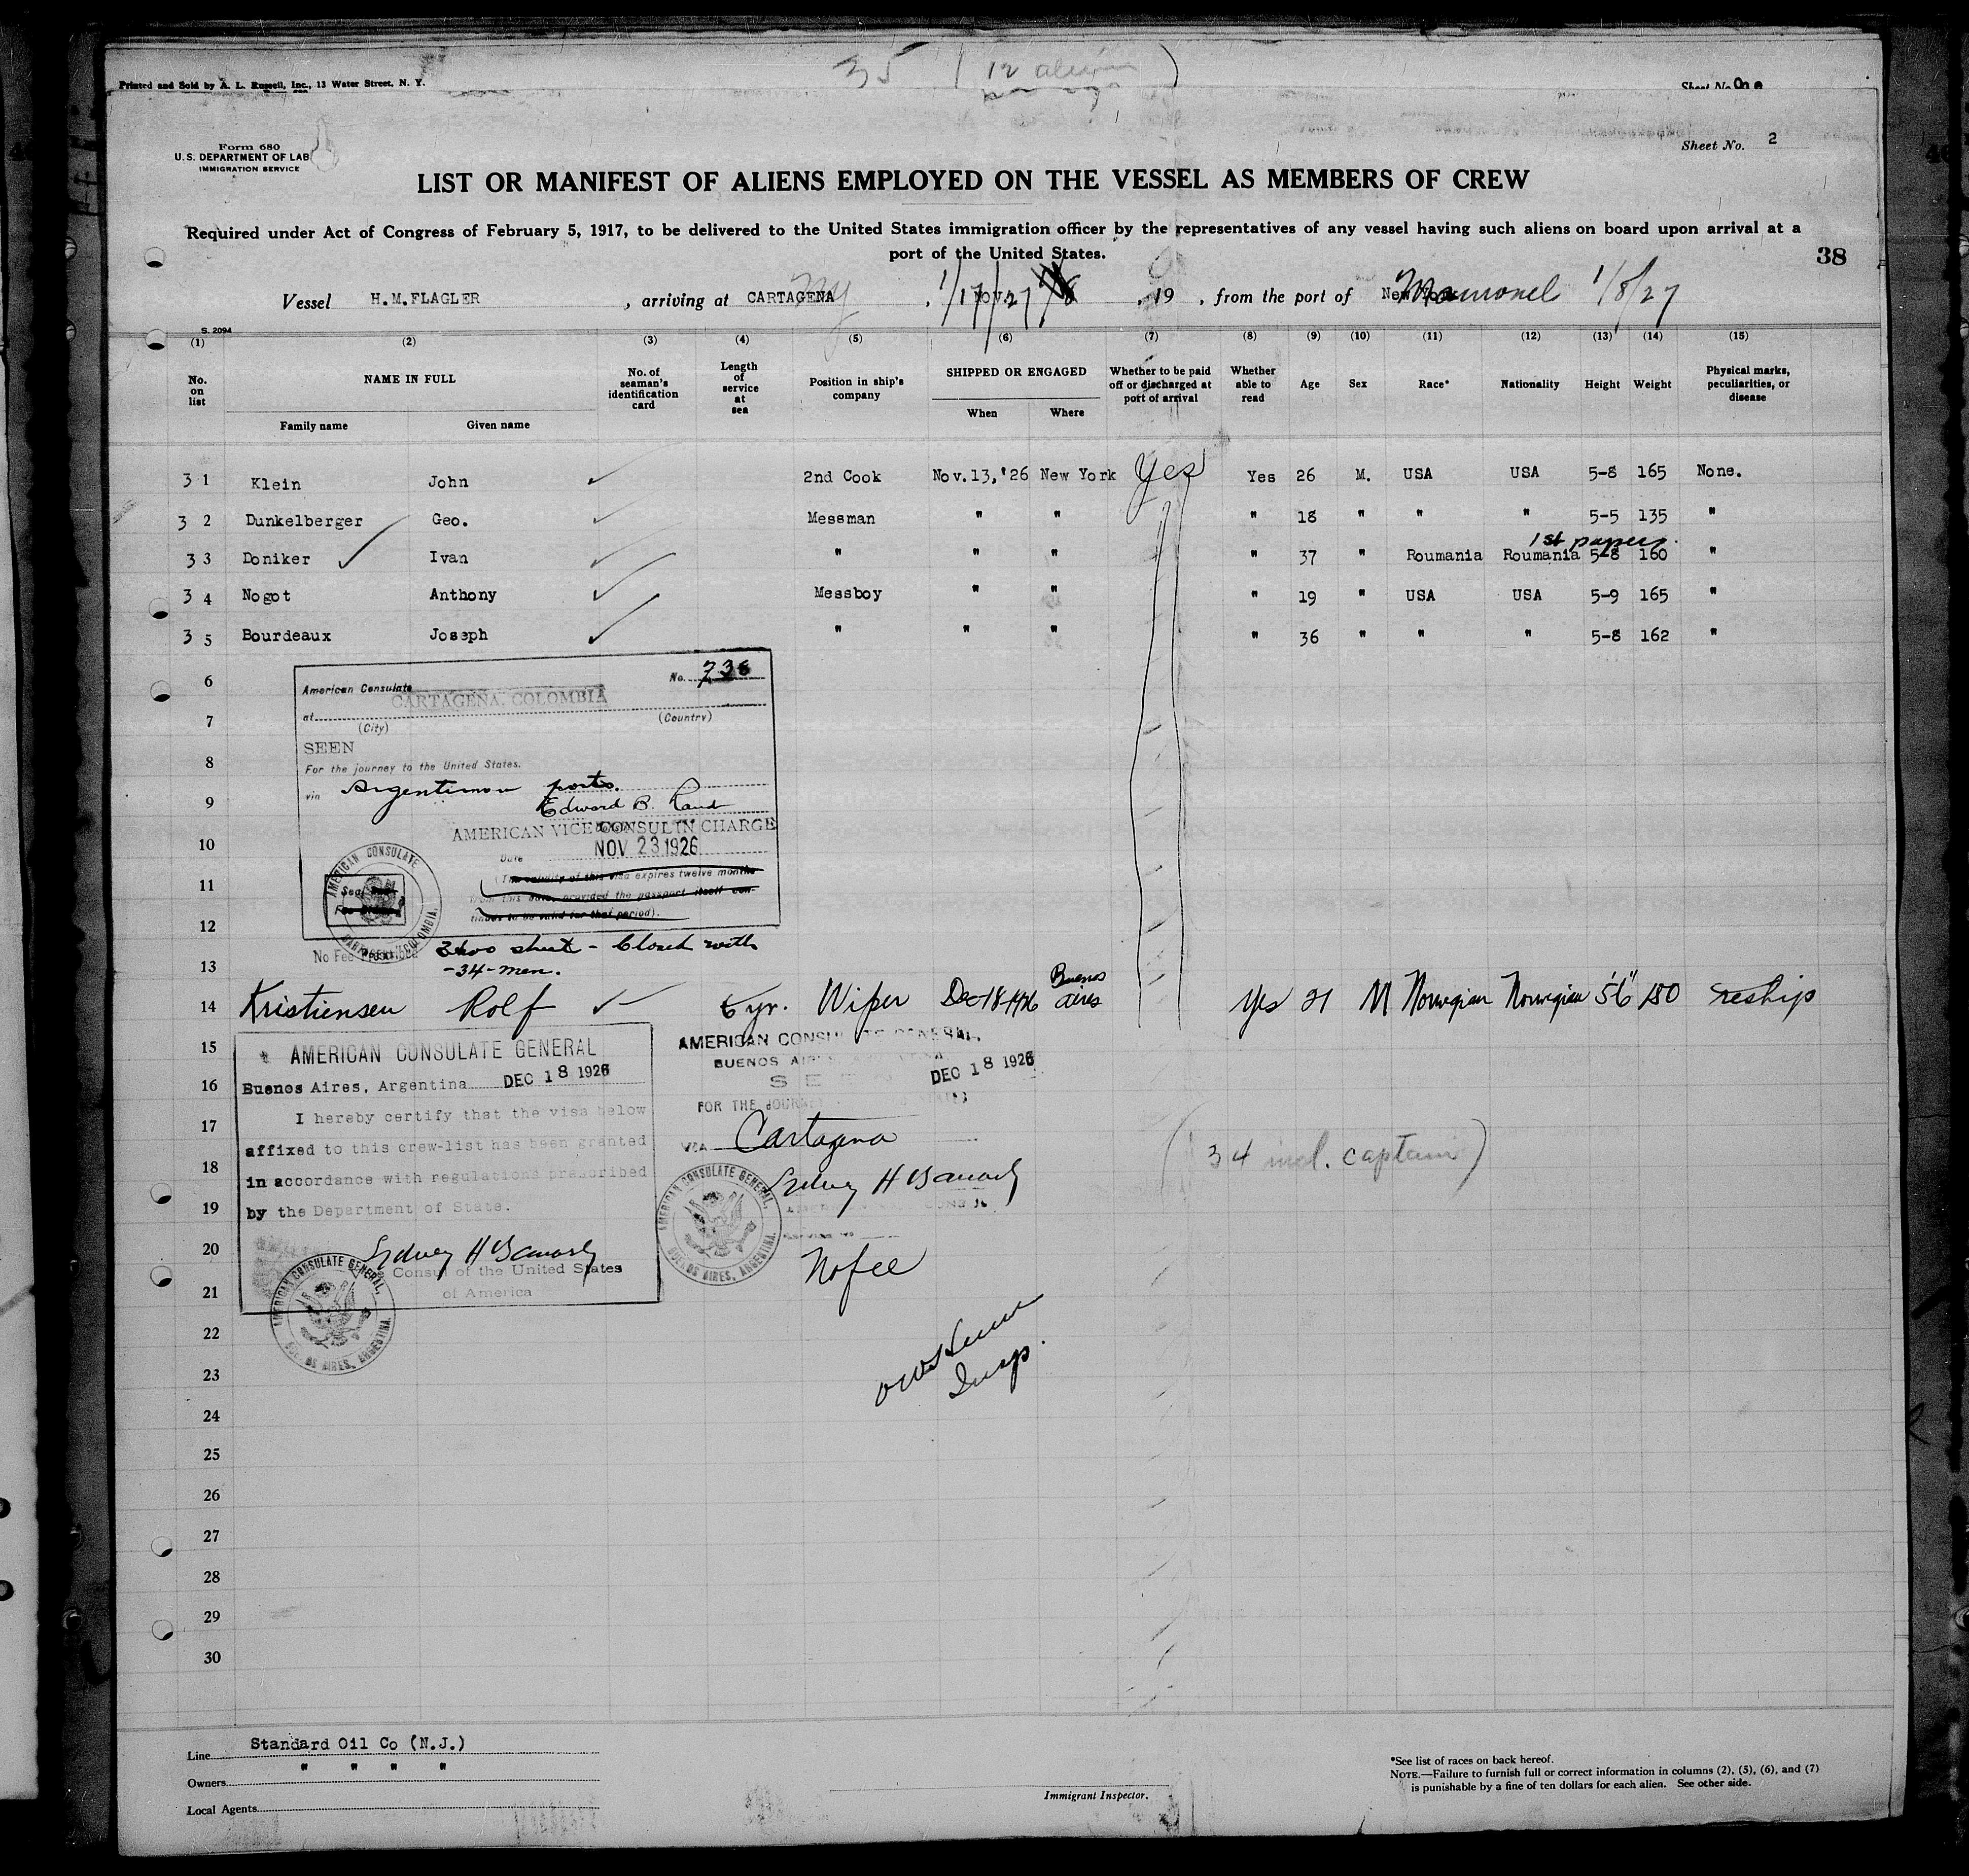 35 (12 aliens)
Printed and Sold by A. L. Russell, Inc., 13 Water Street, N. Y.
Sheet No. One
Form 680
U. S. DEPARTMENT OF LAB
IMMIGRATION SERVICE
Sheet No. 2
LIST OR MANIFEST OF ALIENS EMPLOYED ON THE VESSEL AS MEMBERS OF CREW
Required under Act of Congress of February 5, 1917, to be delivered to the United States immigration officer by the representatives of any vessel having such aliens on board upon arrival at a
port of the United States.
38
Vessel H.M.FLAGLER , arriving at CARTAGENA NY , 1/17/27 , 19 , from the port of Mamonel 1/8/27
S. 2094
(1) (2) (3) (4) (5) (6) (7) (8) (9) (10) (11) (12) (13) (14) (15)
No. on list NAME IN FULL Family name Given name No. of seaman's identification card Length of service at sea Position in ship's company SHIPPED OR ENGAGED When Where Whether to be paid off or discharged at port of arrival Whether able to read Age Sex Race* Nationality Height Weight Physical marks, peculiarities, or disease
3 1 Klein John 2nd Cook Nov.13,'26 New York Yes Yes 26 M. USA USA 5-8 165 None.
3 2 Dunkelberger Geo. Messman " " " 18 " " " 5-5 135 "
1st papers.
3 3 Doniker Ivan " " " " 37 " Roumania Roumania 5-8 160 "
3 4 Nogot Anthony Messboy " " " 19 " USA USA 5-9 165 "
3 5 Bourdeaux Joseph " " " " 36 " " " 5-8 162 "
6
7
8
9
10
11
12
13
American Consulate No. 738
CARTAGENA, COLOMBIA
at
(City) (Country)
SEEN
For the journey to the United States.
via Argentinian ports.
Edward B. Rand
AMERICAN VICE CONSUL IN CHARGE
Date NOV 23 1926
(The validity of this visa expires twelve months
from this date, provided the passport itself con-
tinues to be valid for that period).
Seal
AMERICAN CONSULATE
CARTAGENA, COLOMBIA.
No Fee Prescribed
Two sheet - Closed with
-34- men.
14 Kristiensen Rolf 6 yr. Wiper Dec 18-1926 Buenos Aires Yes 21 M Norwegian Norwegian 5'6" 180 reship
15
16
17
18
19
20
21
22
23
24
25
26
27
28
29
30
AMERICAN CONSULATE GENERAL
Buenos Aires, Argentina DEC 18 1926
I hereby certify that the visa below
affixed to this crew-list has been granted
in accordance with regulations prescribed
by the Department of State.
Consul of the United States
of America
AMERICAN CONSULATE GENERAL,
BUENOS AIRES, ARGENTINA.
AMERICAN CONSULATE GENERAL,
BUENOS AIRES, ARGENTINA
SEEN DEC 18 1926
FOR THE JOURNEY
VIA Cartagena
AMERICAN CONSULATE GENERAL,
BUENOS AIRES, ARGENTINA.
No fee
Insp.
(34 incl. captain)
Line Standard Oil Co (N.J.)
Owners " " " "
Local Agents
Immigrant Inspector.
*See list of races on back hereof.
NOTE.—Failure to furnish full or correct information in columns (2), (5), (6), and (7)
is punishable by a fine of ten dollars for each alien. See other side.